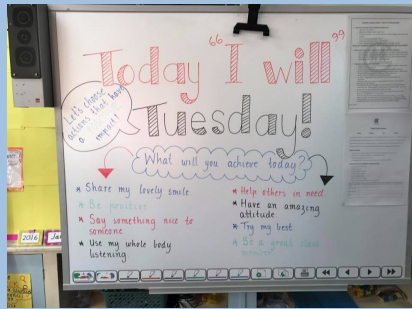 Today "I will"
Tuesday!
Let's choose
actions that have
a
impact!
What will you achieve today?
* Share my lovely smile
* Be positive
* Say something nice to
someone
* Use my whole body
listening
* Help others in need
* Have an amazing
attitude
* Try my best
* Be a great class
member
2016
Jan